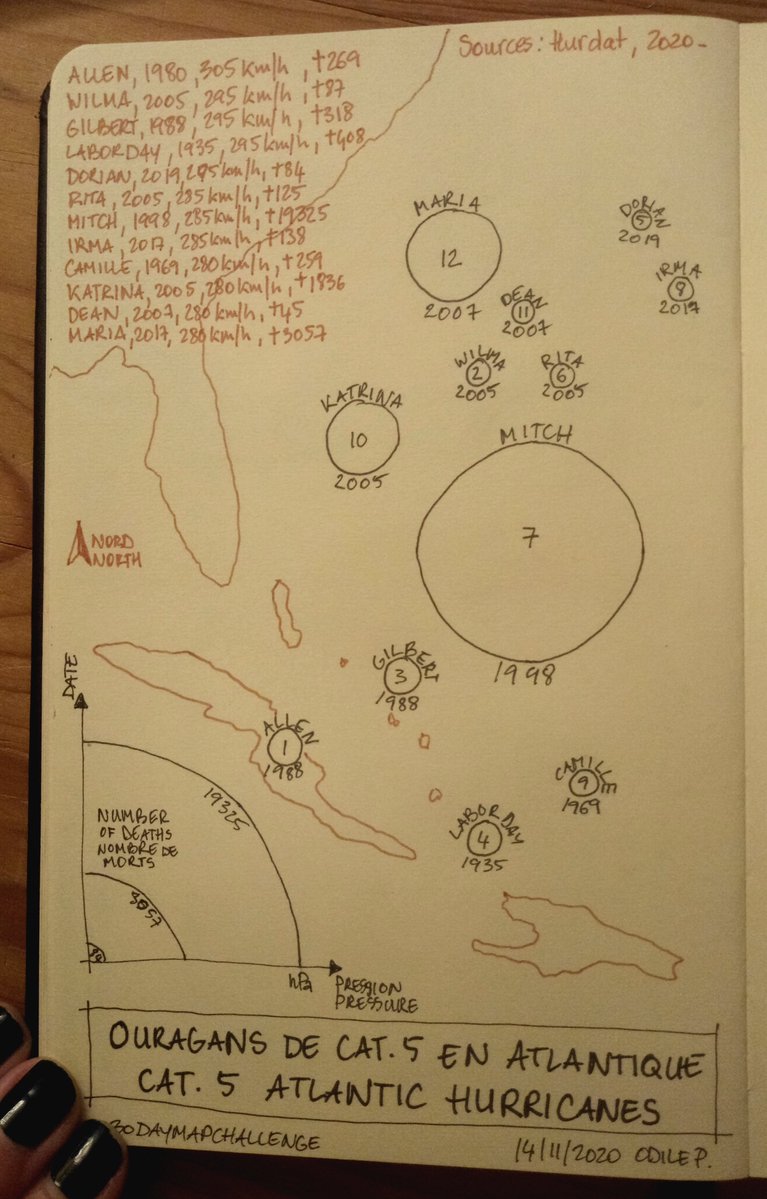 Sources: Hurdat, 2020-
ALLEN, 1980, 305 km/h, †269
WILMA, 2005, 295 km/h, †87
GILBERT, 1988, 295 km/h, †318
LABORDAY, 1935, 295 km/h, †408
DORIAN, 2019, 295 km/h, †84
RITA, 2005, 285 km/h, †125
MITCH, 1998, 285 km/h, †19325
IRMA, 2017, 285 km/h, †138
CAMILLE, 1969, 280 km/h, †259
KATRINA, 2005, 280 km/h, †1836
DEAN, 2007, 280 km/h, †45
MARIA, 2017, 280 km/h, †3057
MARIA
12
2007
DORIAN
5
2019
IRMA
8
2017
DEAN
11
2007
WILMA
2
2005
RITA
6
2005
KATRINA
10
2005
MITCH
7
1998
NORD
NORTH
GILBERT
3
1988
ALLEN
1
1988
CAMILLE
9
1969
LABORDAY
4
1935
DATE
19325
NUMBER
OF DEATHS
NOMBRE DE
MORTS
3057
hPa
PRESSION
PRESSURE
OURAGANS DE CAT. 5 EN ATLANTIQUE
CAT. 5 ATLANTIC HURRICANES
30DAYMAPCHALLENGE
14/11/2020 ODILE P.